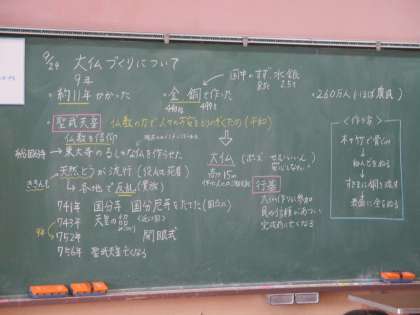 9/24 大仏づくりについて
9年
・約11年かかった
・金銅で作った
国中の すず、水銀
8.5t 2.5t
440kg 499t
・260万人(ほぼ農民)
聖武天皇
仏教の力で人々の不安を
(平和)
仏教を信仰
→東大寺のるしゃな仏を作らせた
天然とうが流行(役人も死者)
→各地で反乱(貴族)
741年 国分寺 国分尼寺をたてた(国ごとに)
743年 天皇の詔
752年 開眼式
756年 聖武天皇亡くなる
大仏
高さ15m
行基
大仏作りに参加
民の信頼があつい
完成前に亡くなる
<作り方>
木や竹で骨ぐみ
ねんどをぬる
すきまに銅を流す
表面に金をぬる